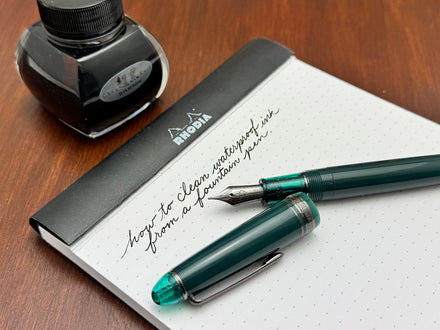 RHODIA
how to clean waterproof ink
from a fountain pen.